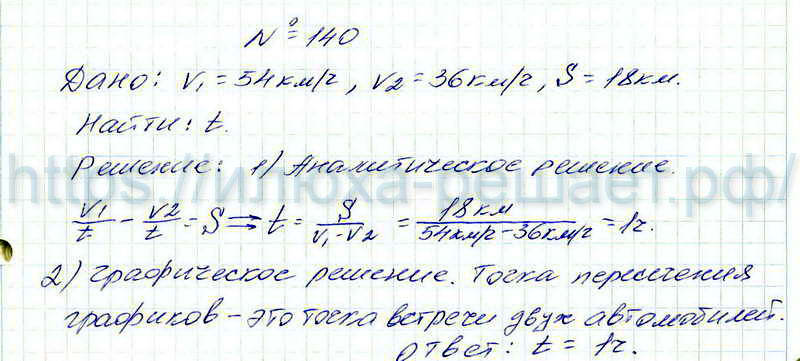 № 140
Дано: V₁ = 54 км/ч, V₂ = 36 км/ч, S = 18 км.
Найти: t.
Решение: 1) Аналитическое решение.
https://илюха-решает.рф/
V1/t - V2/t = S ⇒ t = S/(V₁-V2) = 18 км/(54 км/ч - 36 км/ч) = 1 ч.
2) Графическое решение. Точка пересечения
графиков - это точка встречи двух автомобилей.
Ответ: t = 1 ч.